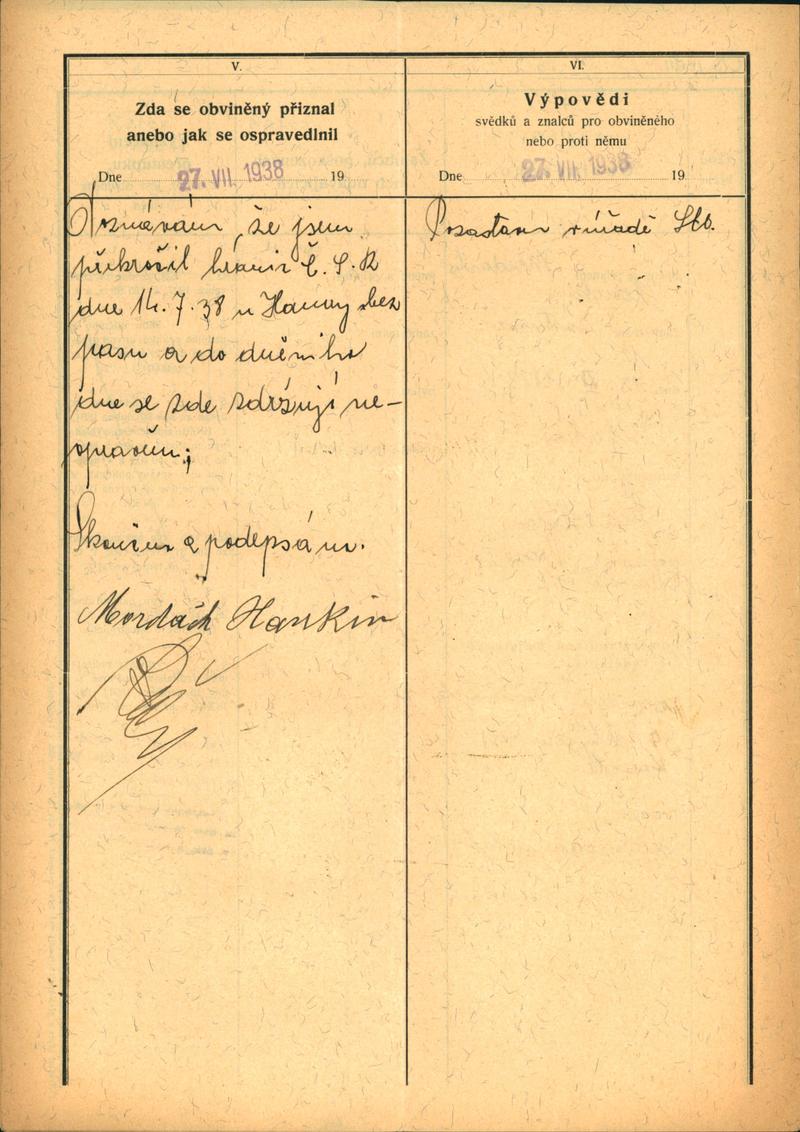 V.
Zda se obviněný přiznal
anebo jak se ospravedlnil
Dne 27. VII. 1938 19
Doznávám, že jsem
překročil hranic Č. S. R
dne 14. 7. 38 u Hanuy bez
pasu a do dnešního
dne se zde zdržuji ne-
oprávněn;
Skončeno a podepsáno.
Mordäch Hankin
VI.
Výpovědi
svědků a znalců pro obviněného
nebo proti němu
Dne 27. VII. 1938 19
Pozastaven v úřadě